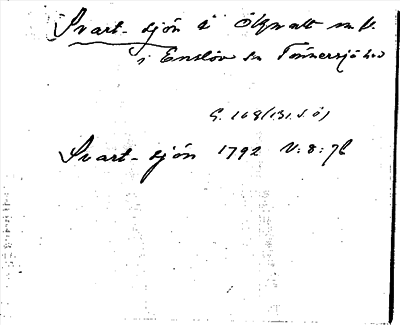 Svart-sjön i Ögnalt m fl.
i Enslöv sn Tönnersjö hd
G. 168 (131. S. Ö)
Svart-sjön 1792 V:8:76